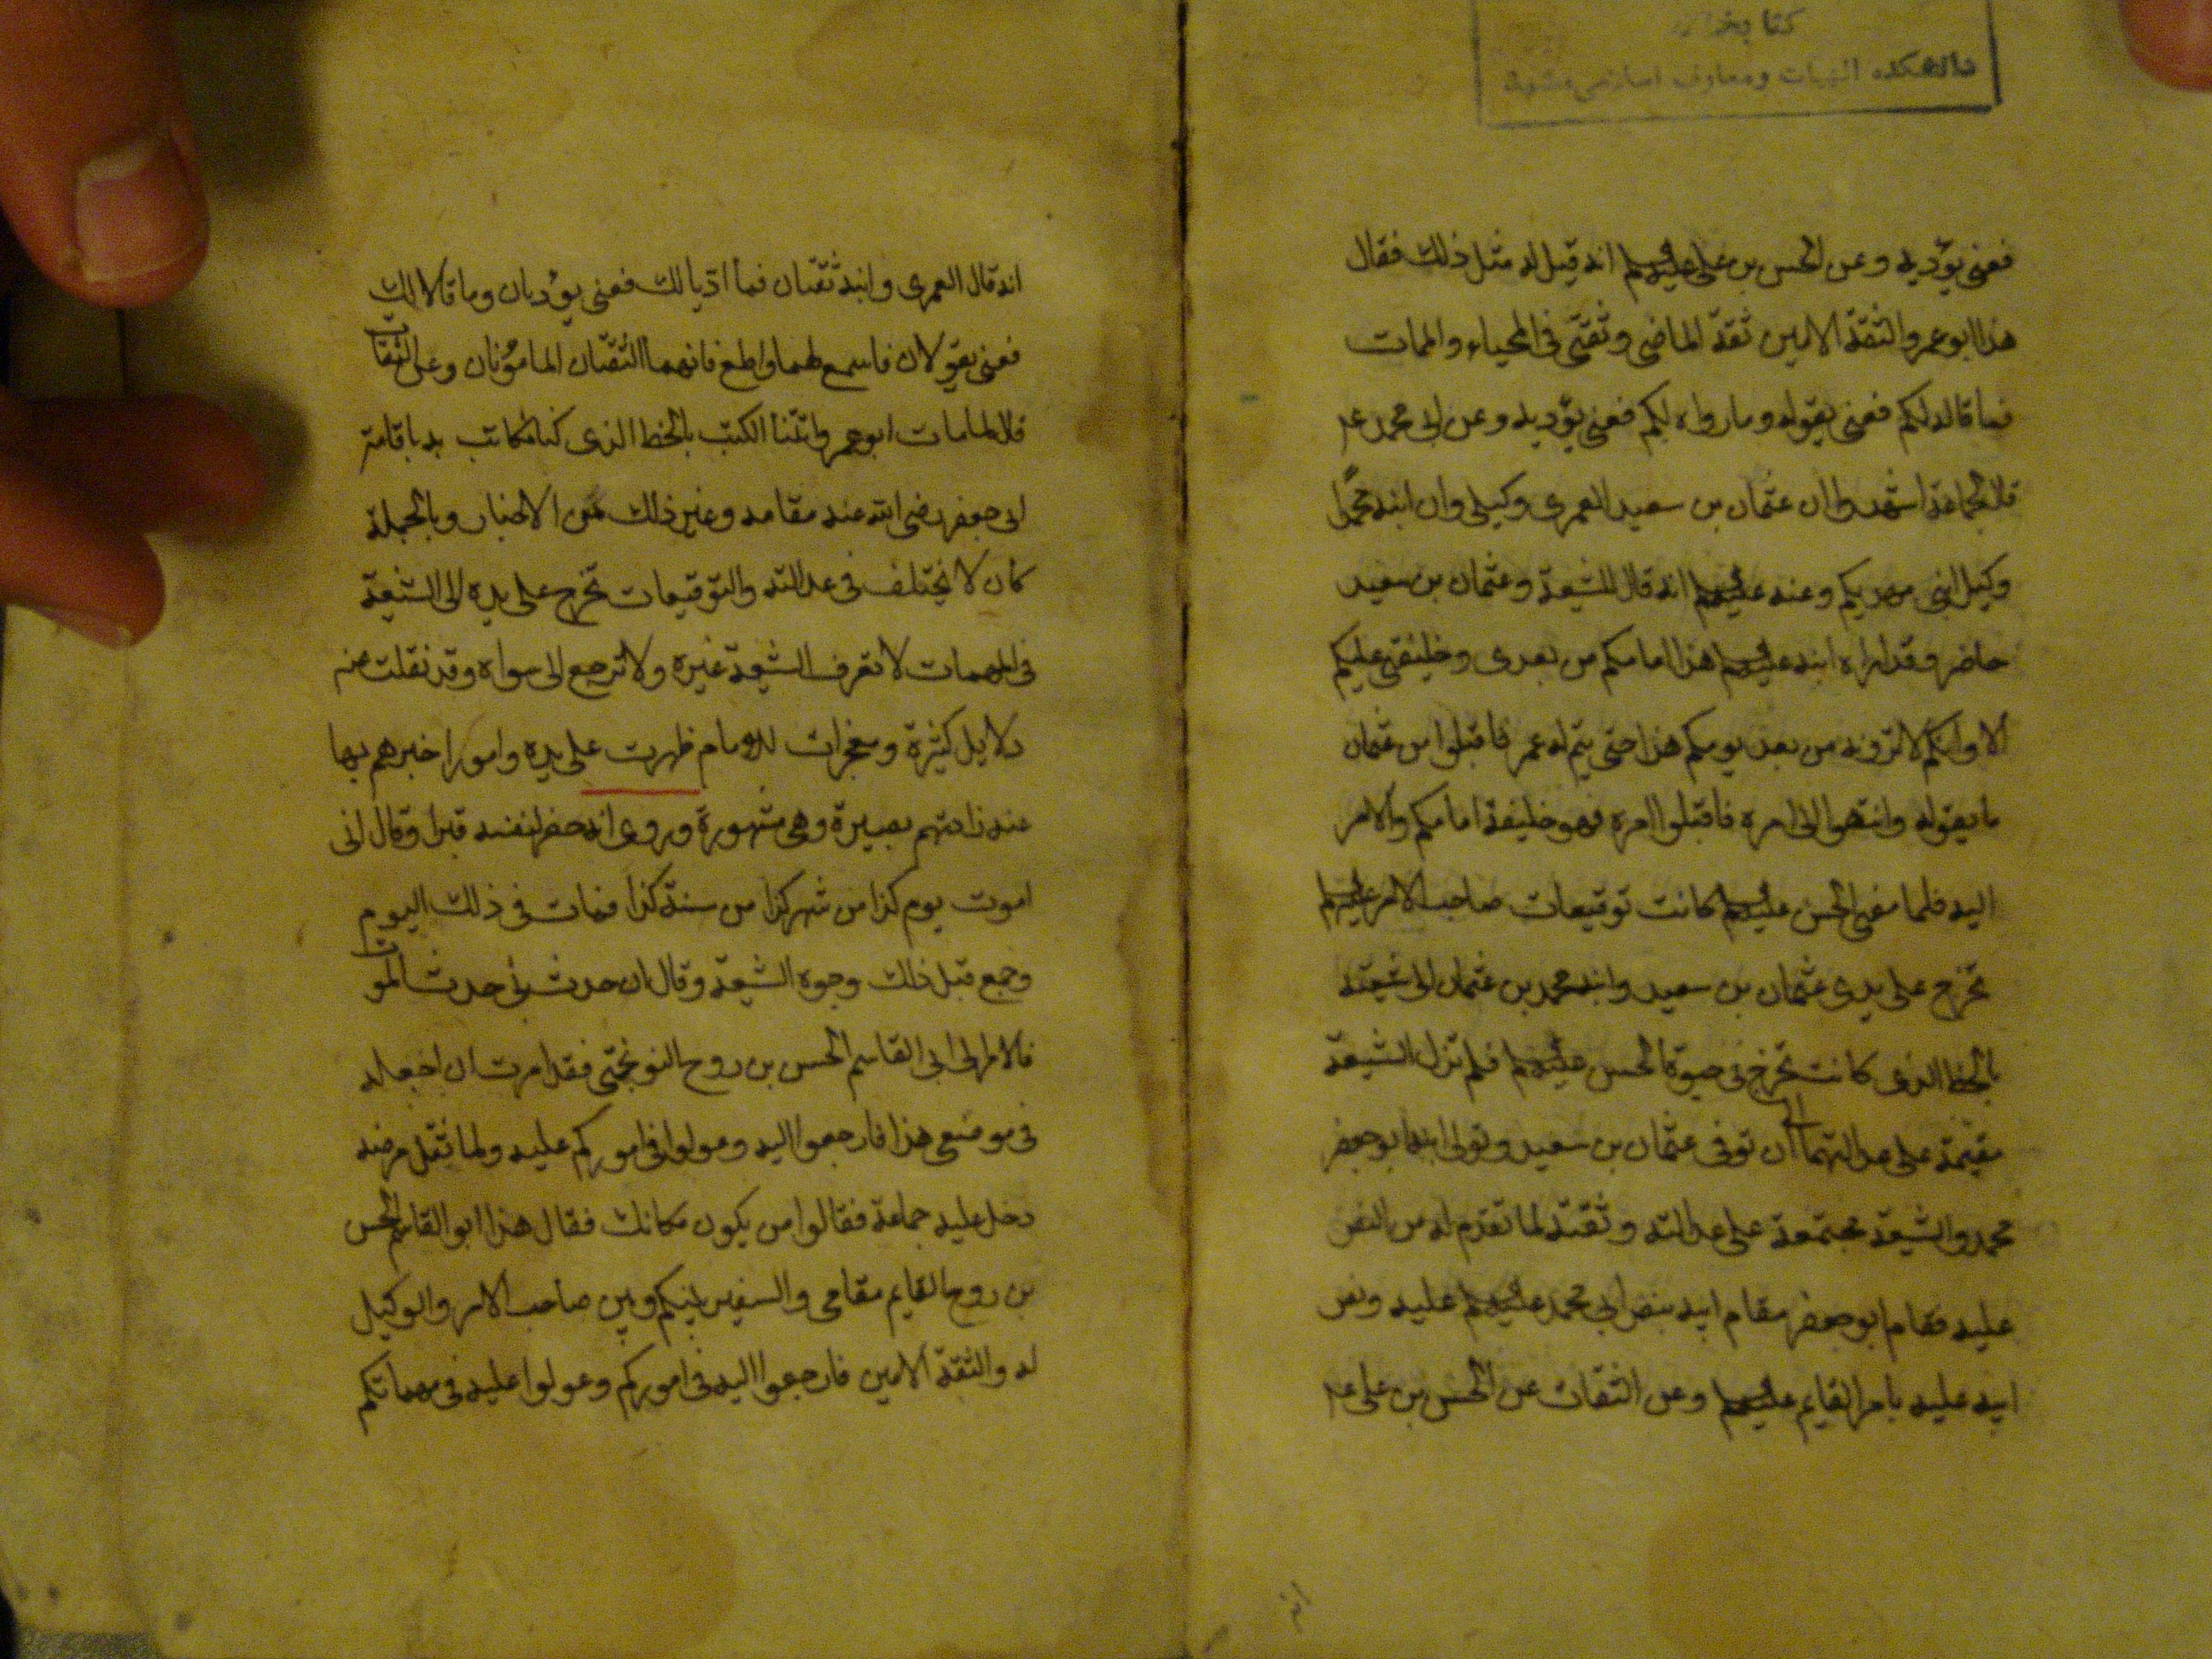 كتابخانه
دانشكده الهيات ومعارف اسلامى مشهد
فعنى يؤديه وعن الحسن بن على عليهم انه قيل له مثل ذلك فقال
هذا ابو عمرو الثقة الامين ثقة الماضى وثقتى فى المحياء والممات
فما قاله لكم فعنى يقوله وما رواه لكم فعنى يؤديه وعن ابى محمد عم
قال لجماعة اشهدوا ان عثمان بن سعيد العمرى وكيلى وان ابنه محمدا
وكيل ابنى مهديكم وعنه عليهم انه قال للشيعة وعثمان بن سعيد
حاضر وقد اراه ابنه عليهم هذا امامكم من بعدى وخليفتى عليكم
الا وانكم لا ترونه من بعد يومكم هذا حتى يتم له عمر فاقبلوا من عثمان
ما يقوله وانتهوا الى امره فاقبلوا امره فهو خليفة امامكم والامر
اليه فلما مضى الحسن عليهم كانت توقيعات صاحب الامر عليهم
تخرج على يدى عثمان بن سعيد وابنه محمد بن عثمان الى شيعته
بالخط الذى كانت تخرج فى حيوة الحسن عليهم فلم تزل الشيعة
مقيمة على عدالتهما الى ان توفى عثمان بن سعيد وتولى ابنه ابو جعفر
محمد والشيعة مجتمعة على عدالته وثقته لما تقدم له من النص
عليه فقام ابو جعفر مقام ابيه بنص ابى محمد عليهم عليه ونص
ابيه عليه بامر القايم عليهم وعن الثقات عن الحسن بن على عم
انه
انه قال العمرى وابنه ثقتان فما اديا لك فعنى يؤديان وما قالا لك
فعنى يقولان فاسمع لهما واطع فانهما الثقتان المامونان وعن الثقات
قال لما مات ابو عمرو اتتنا الكتب بالخط الذى كنا نكاتب به باقامة
ابى جعفر رضى الله عنه مقامه وغير ذلك من الاخبار وبالجملة
كان لا يختلف فى عدالته والتوقيعات تخرج على يده الى الشيعة
فى المهمات لا تعرف الشيعة غيره ولا ترجع الى سواه وقد نقلت عنه
دلايل كثيرة ومعجزات للامام ظهرت على يده وامور اخبرهم بها
عنه زادتهم بصيرة وهى مشهورة وروى انه حفر لنفسه قبرا وقال انى
اموت يوم كذا من شهر كذا من سنة كذا فمات فى ذلك اليوم
وجمع قبل ذلك وجوه الشيعة وقال ان حدث بى حدث الموت
فالامر الى ابى القاسم الحسن بن روح النوبختى فقد امرت ان اجعله
فى موضعى هذا فارجعوا اليه وعولوا فى اموركم عليه ولما ثقل مرضه
دخل عليه جماعة فقالوا من يكون مكانك فقال هذا ابو القاسم الحسن
بن روح القايم مقامى والسفير بينكم وبين صاحب الامر والوكيل
له والثقة الامين فارجعوا اليه فى اموركم وعولوا عليه فى مهماتكم